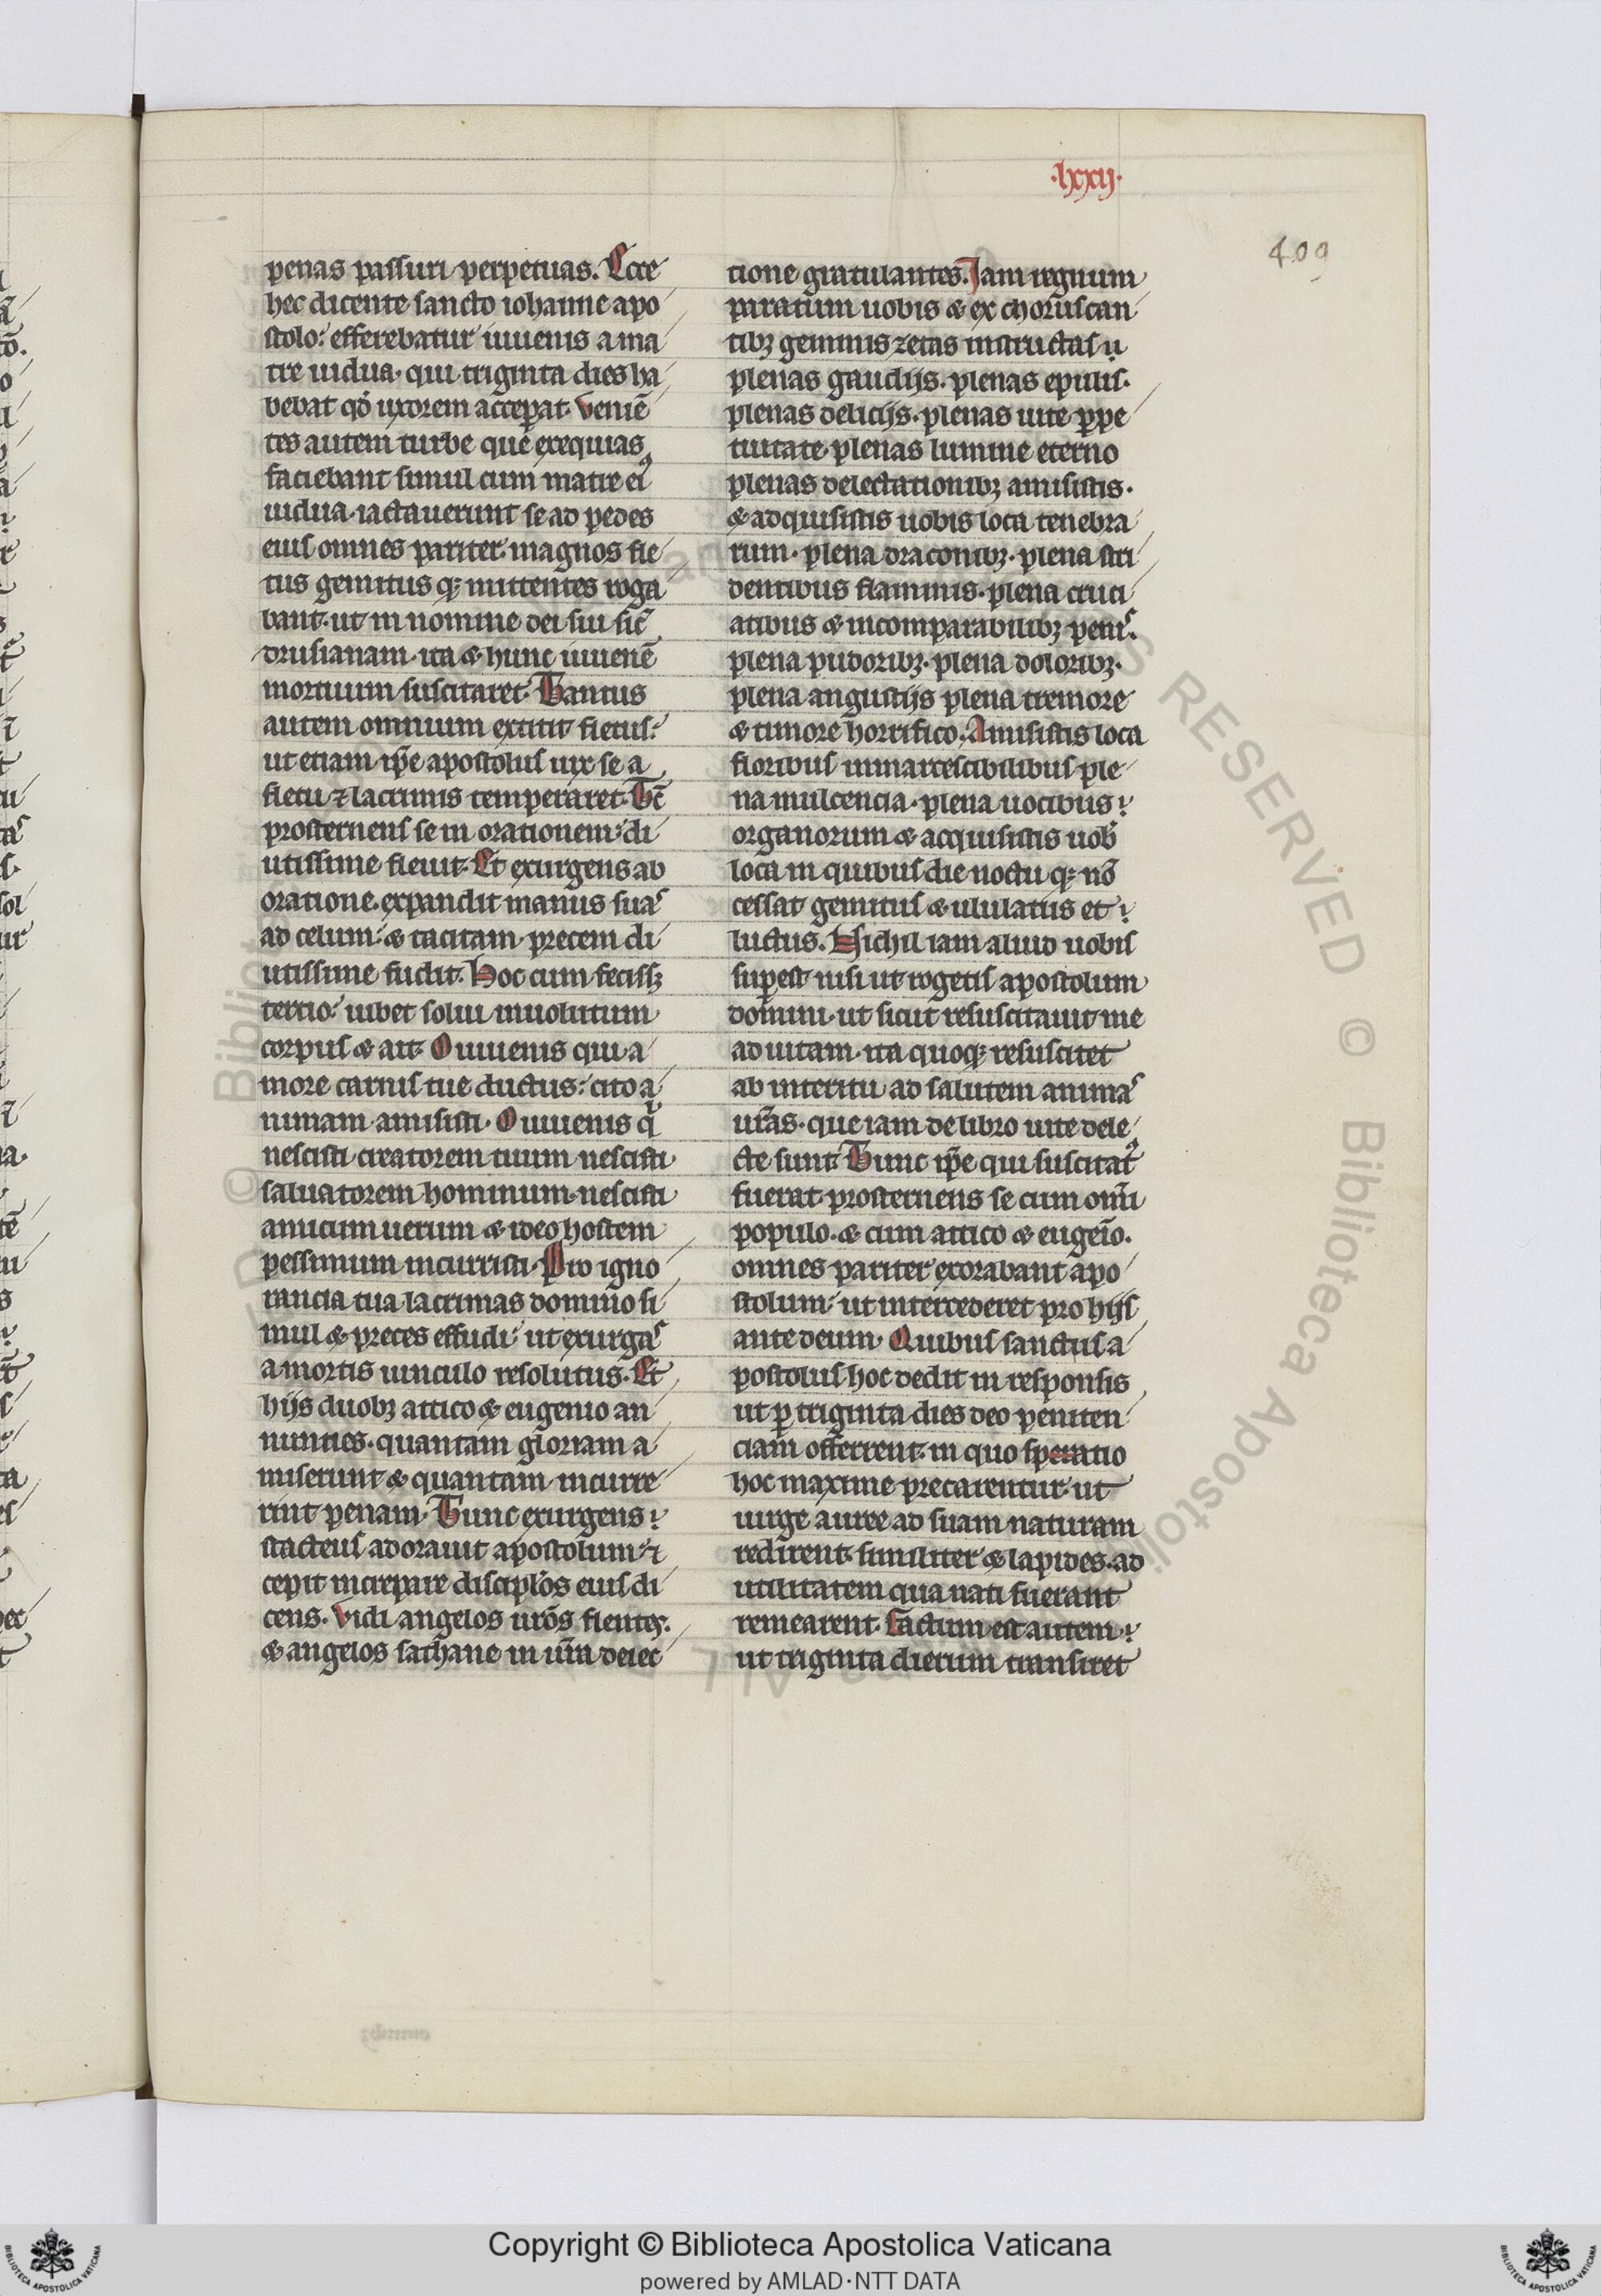 ·lxxij·
409
penas passuri perpetuas. Ecce
hec dicente sancto iohanne apo
stolo: efferebatur iuuenis a ma
tre uidua· qui triginta dies ha
bebat qd̓ uxorem acceperat. Veniē
tes autem turbe que exequias
faciebant simul cum matre eiꝰ
uidua· iactauerunt se ad pedes
eius omnes pariter magnos fle
tus gemitus qꝫ mittentes roga
bant· ut in nomine dei sui sic̄
drusianam· ita & hunc iuuenē
mortuum suscitaret. Tantus
autem omnium extitit fletus:
ut etiam ip̄e apostolus uix se a
fletu ⁊ lacrimis temperaret. Tc̄
prosternens se in orationem: di
utissime fleuit. Et exurgens ab
oratione expandit manus suas
ad celum: & tacitam precem di
utissime fudit. Hoc cum fecissꝫ
tertio: iubet solui inuolutum
corpus & ait. O iuuenis qui a
more carnis tue ductus: cito a
nimam amisisti. O iuuenis qͥ
nescisti creatorem tuum nescisti
saluatorem hominum· nescisti
amicum uerum & ideo hostem
pessimum incurristi. Pro igno
rancia tua lacrimas domino si
mul & preces effudi: ut exurgas
a mortis uinculo resolutus. Et
hijs duobꝫ attico & eugenio an
nunties· quantam gloriam a
miserunt & quantam incurre
rint penam. Tunc exurgens
stacteus adorauit apostolum: ⁊
cepit increpare discipl̓os eius di
cens. Vidi angelos ur̄os flentes.
& angelos sathane in ur̄a deiec
tione gratulantes. Iam regnum
paratum uobis & ex choruscan
tibꝫ gemmis zetas instructas
plenas gaudijs· plenas epulis·
plenas delicijs· plenas uite ꝑpe
tuitate plenas lumine eterno
plenas delectationibꝫ amisistis·
& adquisistis uobis loca tenebra
rum· plena draconibꝫ· plena stri
dentibus flammis· plena cruci
atibus & incomparabilibꝫ penis.
plena pudoribꝫ· plena doloribꝫ·
plena angustijs plena tremore
& timore horrifico. Amisistis loca
floribus inmarcescibilibus ple
na mulcencia· plena uocibus
organorum & acquisistis uob̓
loca in quibus die noctu qꝫ nō
cessat gemitus & ululatus et
luctus. Nichil iam aliud uobis
suꝑest nisi ut rogetis apostolum
domini· ut sicut resuscitauit me
ad uitam· ita quoqꝫ resuscitet
ab interitu ad salutem animas
ur̄as· que iam de libro uite dele
cte sunt. Tunc ip̄e qui suscitatꝰ
fuerat prosternens se cum om̄i
populo· & cum attico & eugēio.
omnes pariter exorabant apo
stolum: ut intercederet pro hijs
ante deum. Quibus sanctus a
postolus hoc dedit in responsis
ut ꝑ triginta dies deo peniten
ciam offerrent. in quo speratio
hoc maxime precarentur ut
uirge auree ad suam naturam
redirent. similiter & lapides. ad
utilitatem qua nati fuerant
remearent. Factum est autem
ut triginta dierum transiret
Copyright © Biblioteca Apostolica Vaticana
powered by AMLAD·NTT DATA